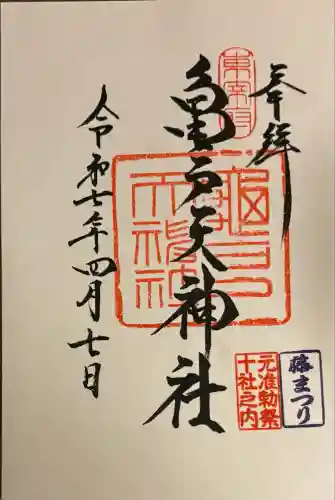 奉拝
亀戸天神社
令和七年四月七日
東宰府
元准勅祭
十社之内
藤まつり